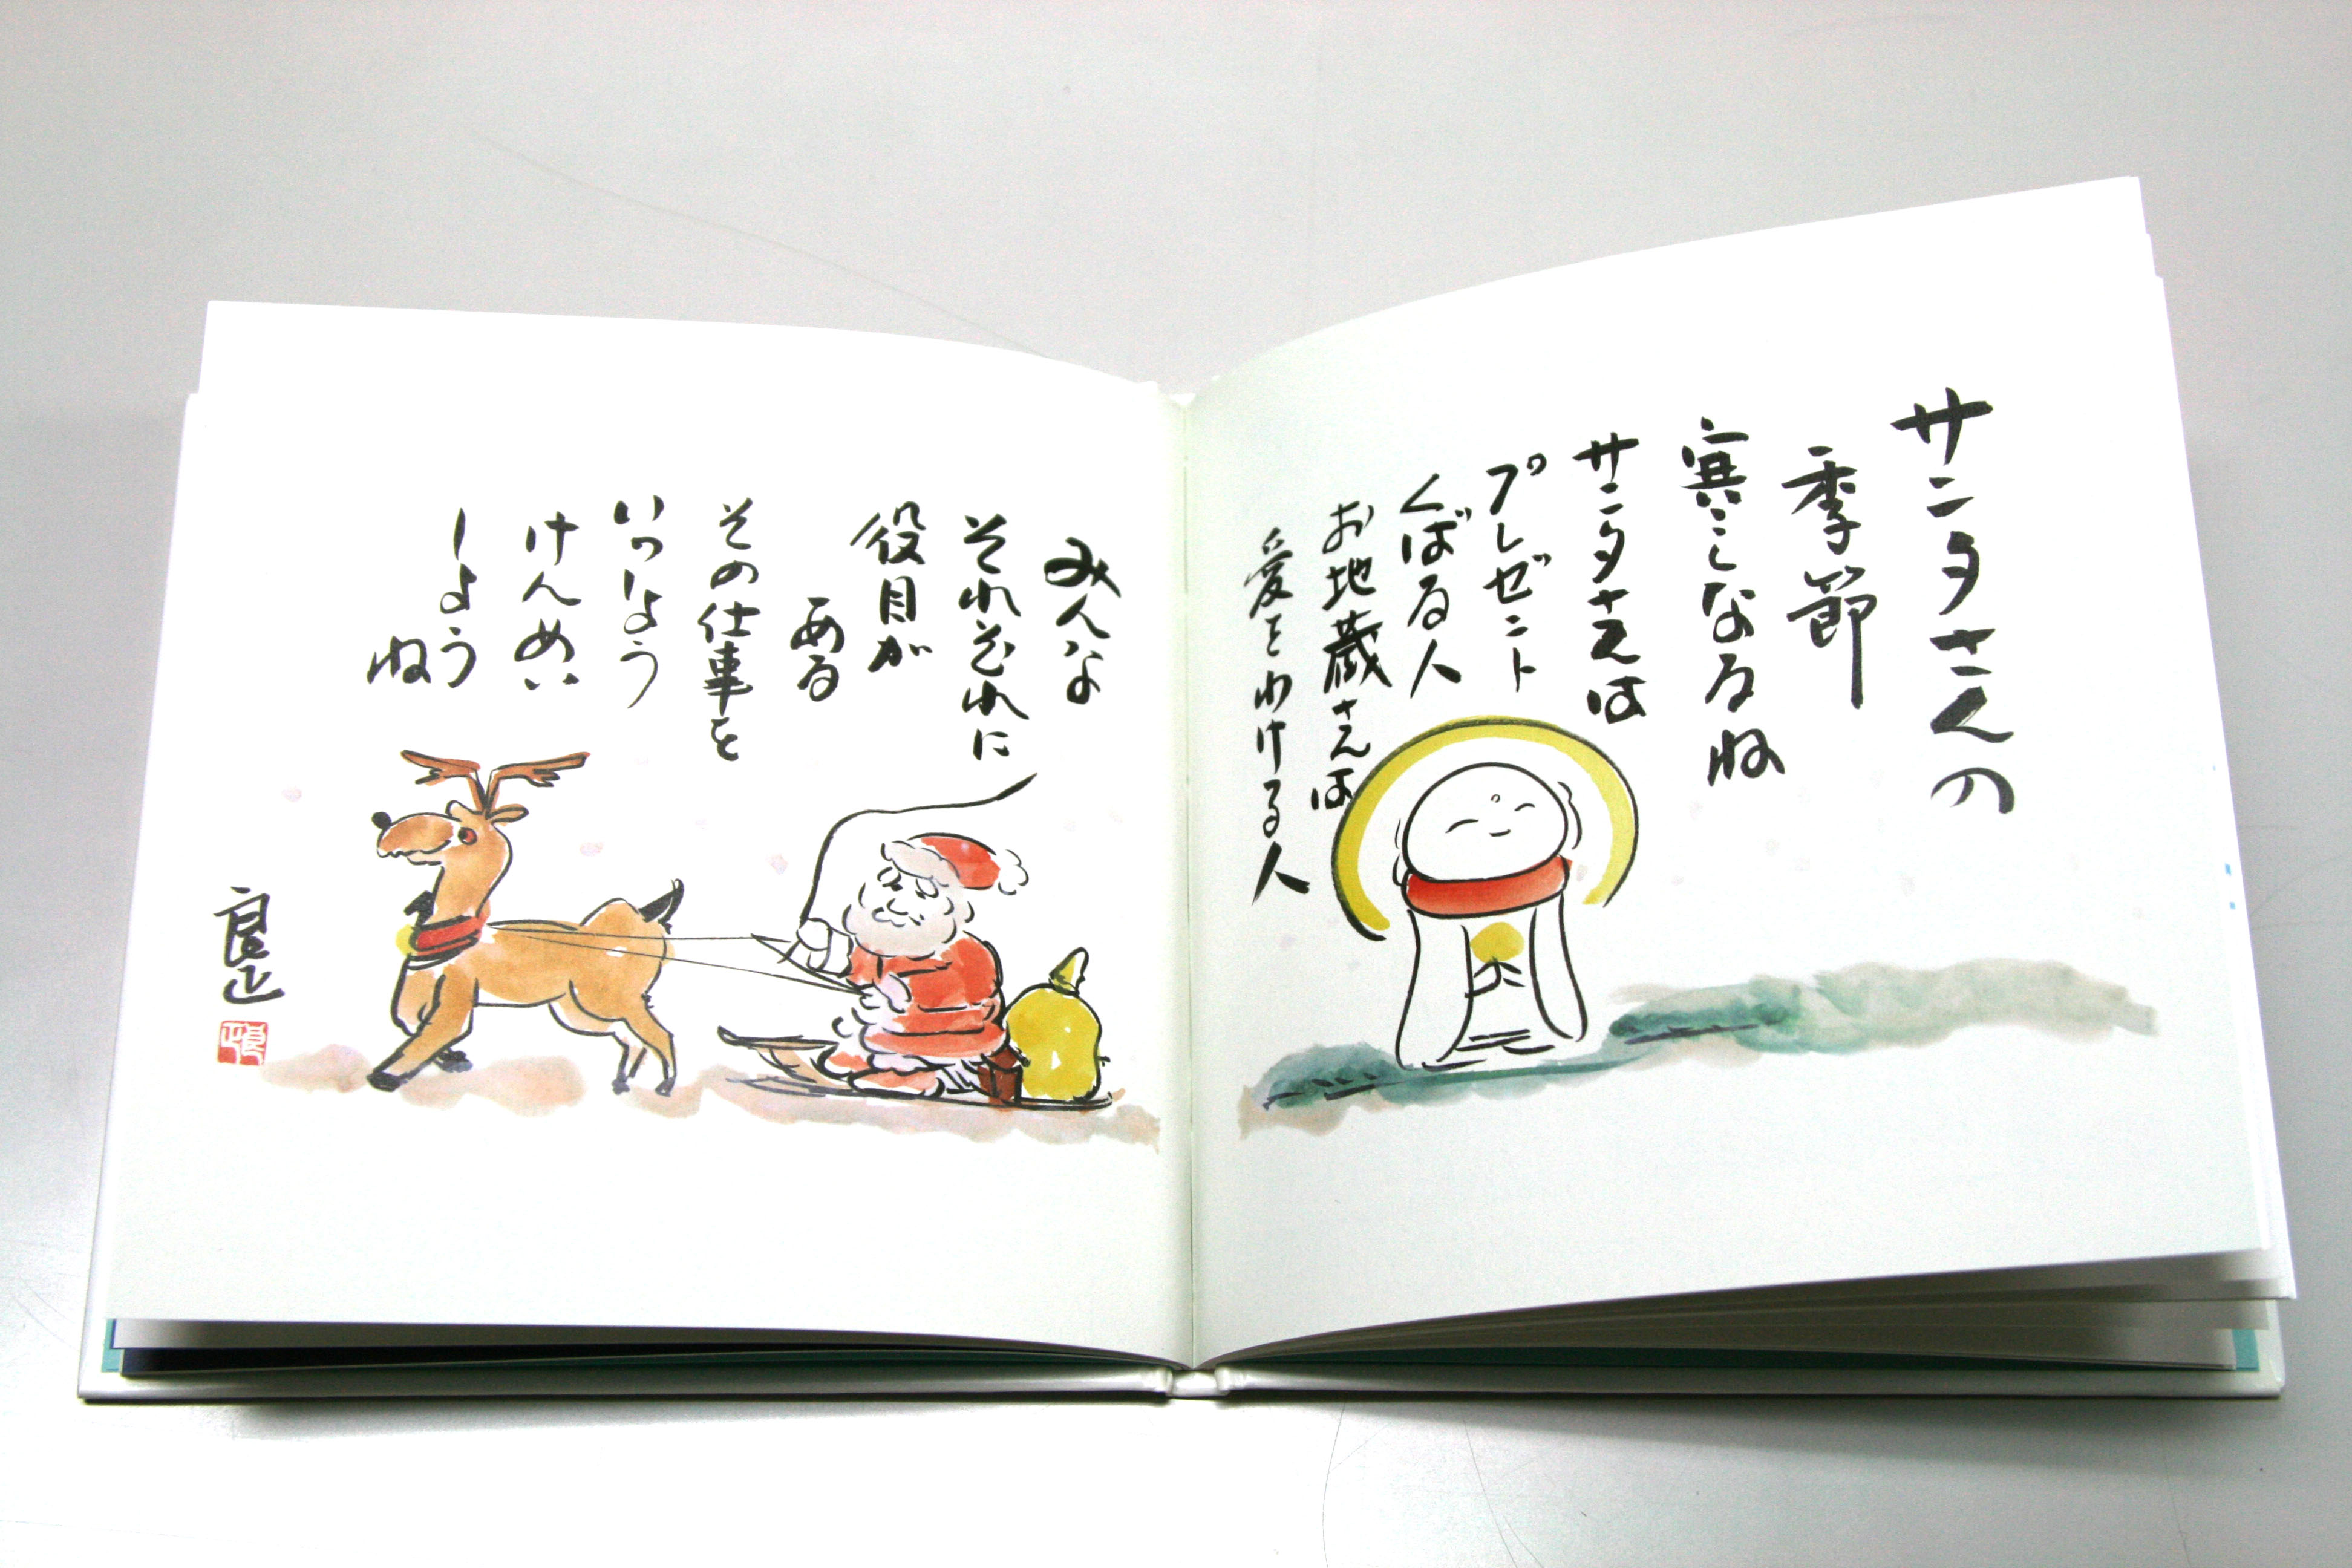 サンタさんの
季節
寒くなるね
サンタさんは
プレゼント
くばる人
お地蔵さんは
愛をわける人
みんな
それぞれに
役目が
ある
その仕事を
いっしょう
けんめい
しよう
ね
良正